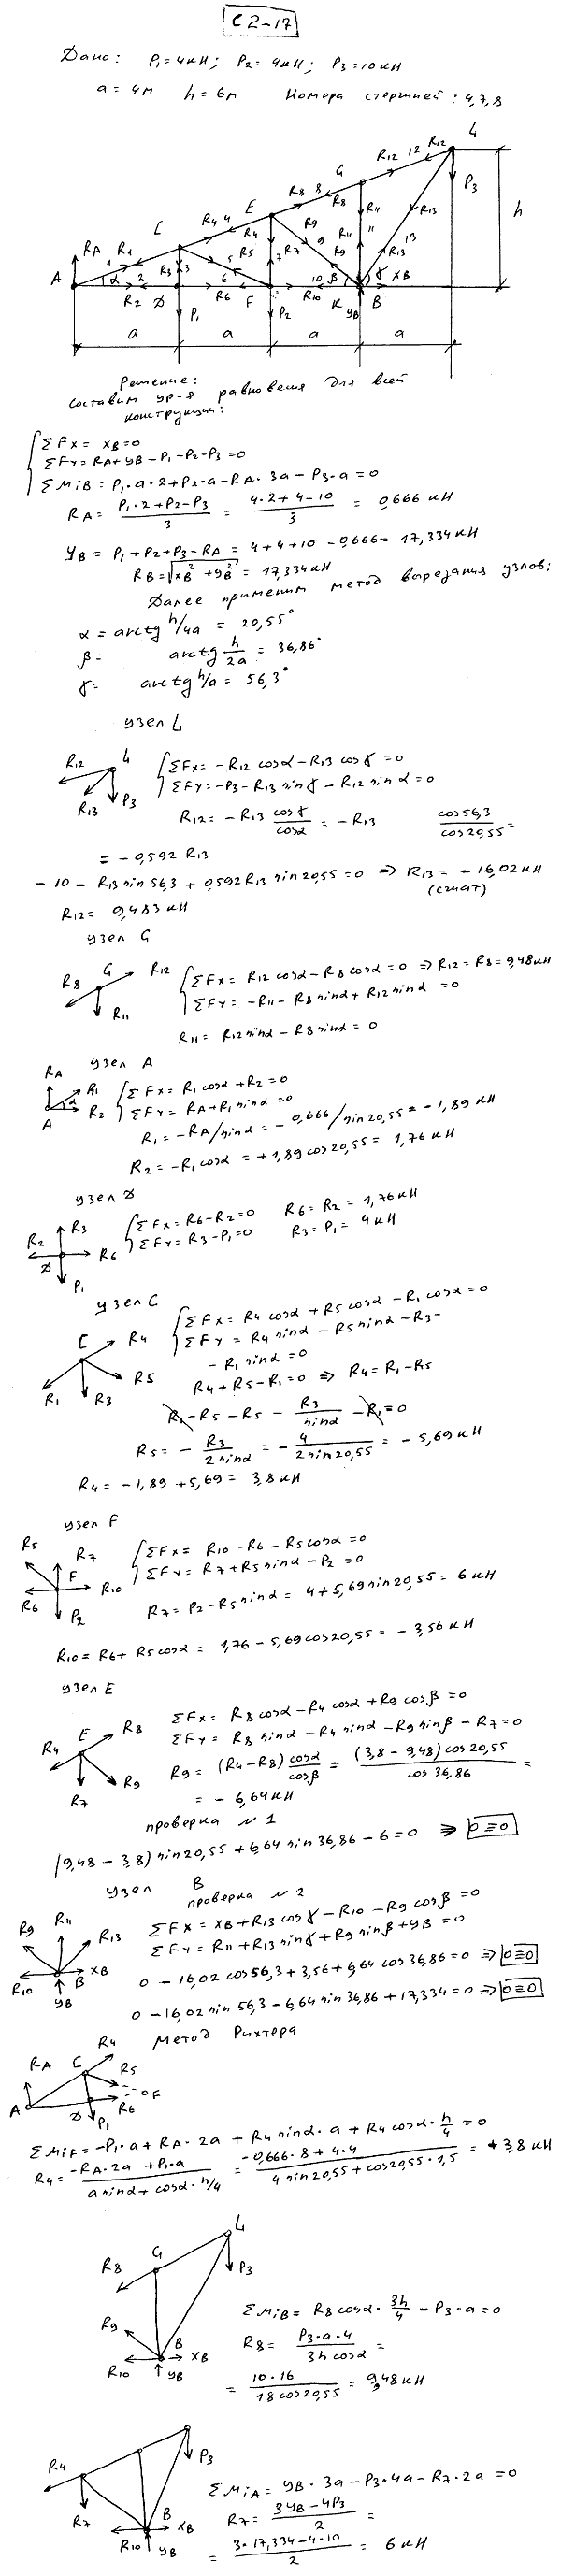 С2-17
Дано: P₁=4кН; P₂=4кН; P₃=10кН
a=4м h=6м Номера стержней: 4,7,8
L
R12 12 R12
G
P3
R8 8 R8
R11
R13
h
E
C
R4 4 R4
R9
R7
9
R11 11
13
RA R1
R3 3
5 R5
7
R9
R13
A 1 α 2
6
10 β
γ XB
R2 D R6 F R10 K YB B
P1 P2
a a a a
Решение:
составим ур-я равновесия для всей
конструкции:
ΣFx = XB=0
ΣFy= RA+YB-P1-P2-P3=0
ΣMiB = P1·a·2+P2·a-RA·3a-P3·a=0
RA = (P1·2+P2-P3)/3 = (4·2+4-10)/3 = 0,666 кН
YB = P1+P2+P3-RA = 4+4+10-0,666= 17,334кН
RB=√(XB²+YB²) = 17,334кН
Далее применим метод вырезания узлов:
α = arctg h/4a = 20,55°
β= arctg h/2a = 36,86°
γ= arctg h/a = 56,3°
узел L
R12 L
R13 P3
ΣFx= -R12 cosα-R13 cosγ=0
ΣFy= -P3-R13 sinγ-R12 sinα=0
R12= -R13 cosγ/cosα = -R13 cos56,3/cos20,55=
= -0,592 R13
-10-R13 sin56,3+0,592R13 sin20,55=0 => R13= -16,02кН
(сжат)
R12= 9,483 кН
узел G
R8 G R12
R11
ΣFx= R12 cosα-R8 cosα=0 => R12=R8=9,48кН
ΣFy= -R11-R8 sinα+R12 sinα=0
R11= R12 sinα-R8 sinα=0
узел A
RA
R1
α R2
A
ΣFx= R1 cosα+R2=0
ΣFy= RA+R1 sinα=0
R1= -RA/sinα= -0,666/sin20,55= -1,89 кН
R2= -R1 cosα= +1,89cos20,55= 1,76 кН
узел D
R3
R2 R6
D P1
ΣFx=R6-R2=0 R6=R2= 1,76кН
ΣFy= R3-P1=0 R3=P1= 4кН
узел C
C R4
R5
R1 R3
ΣFx= R4 cosα+R5 cosα-R1 cosα=0
ΣFy= R4 sinα-R5 sinα-R3-
-R1 sinα=0
R4+R5-R1=0 => R4=R1-R5
R1-R5-R5- R3/sinα -R1=0
R5= - R3/2sinα = - 4/2sin20,55 = -5,69кН
R4= -1,89+5,69= 3,8кН
узел F
R5 R7
F
R6 R10
P2
ΣFx= R10-R6-R5cosα=0
ΣFy= R7+R5 sinα-P2=0
R7= P2-R5 sinα= 4+5,69sin20,55= 6 кН
R10= R6+R5cosα= 1,76-5,69cos20,55= -3,56кН
узел E
E R8
R4
R9
R7
ΣFx= R8 cosα-R4 cosα+R9 cosβ=0
ΣFy= R8 sinα-R4 sinα-R9 sinβ-R7=0
R9= (R4-R8) cosα/cosβ = (3,8-9,48)cos20,55/cos36,86 =
= -6,64кН
проверка №1
(9,48-3,8)sin20,55+6,64 sin36,86-6=0 => 0≡0
узел B
проверка №2
R9 R11
R13
XB
R10 YB B
ΣFx= XB+R13 cosγ-R10-R9 cosβ=0
ΣFy= R11+R13 sinγ+R9 sinβ+YB=0
0-16,02cos56,3+3,56+6,64cos36,86=0 => 0≡0
0-16,02sin56,3-6,64sin36,86+17,334=0 => 0≡0
Метод Риттера
R4
RA C
R5
F
A D R6
P1
ΣMiF= -P1·a+RA·2a+R4 sinα·a+R4 cosα·h/4=0
R4= (-RA·2a+P1·a)/(a sinα+cosα·h/4) = (-0,666·8+4·4)/(4sin20,55+cos20,55·1,5) = +3,8кН
L
G
R8 P3
R9
B
XB
R10 YB
ΣMiB= R8 cosα·3h/4-P3·a=0
R8= P3·a·4/3h cosα =
= 10·16/18cos20,55 = 9,48кН
P3
R4
R7
B
XB
R10 YB
ΣMiA= YB·3a-P3·4a-R7·2a=0
R7= (3YB-4P3)/2 =
= (3·17,334-4·10)/2 = 6кН